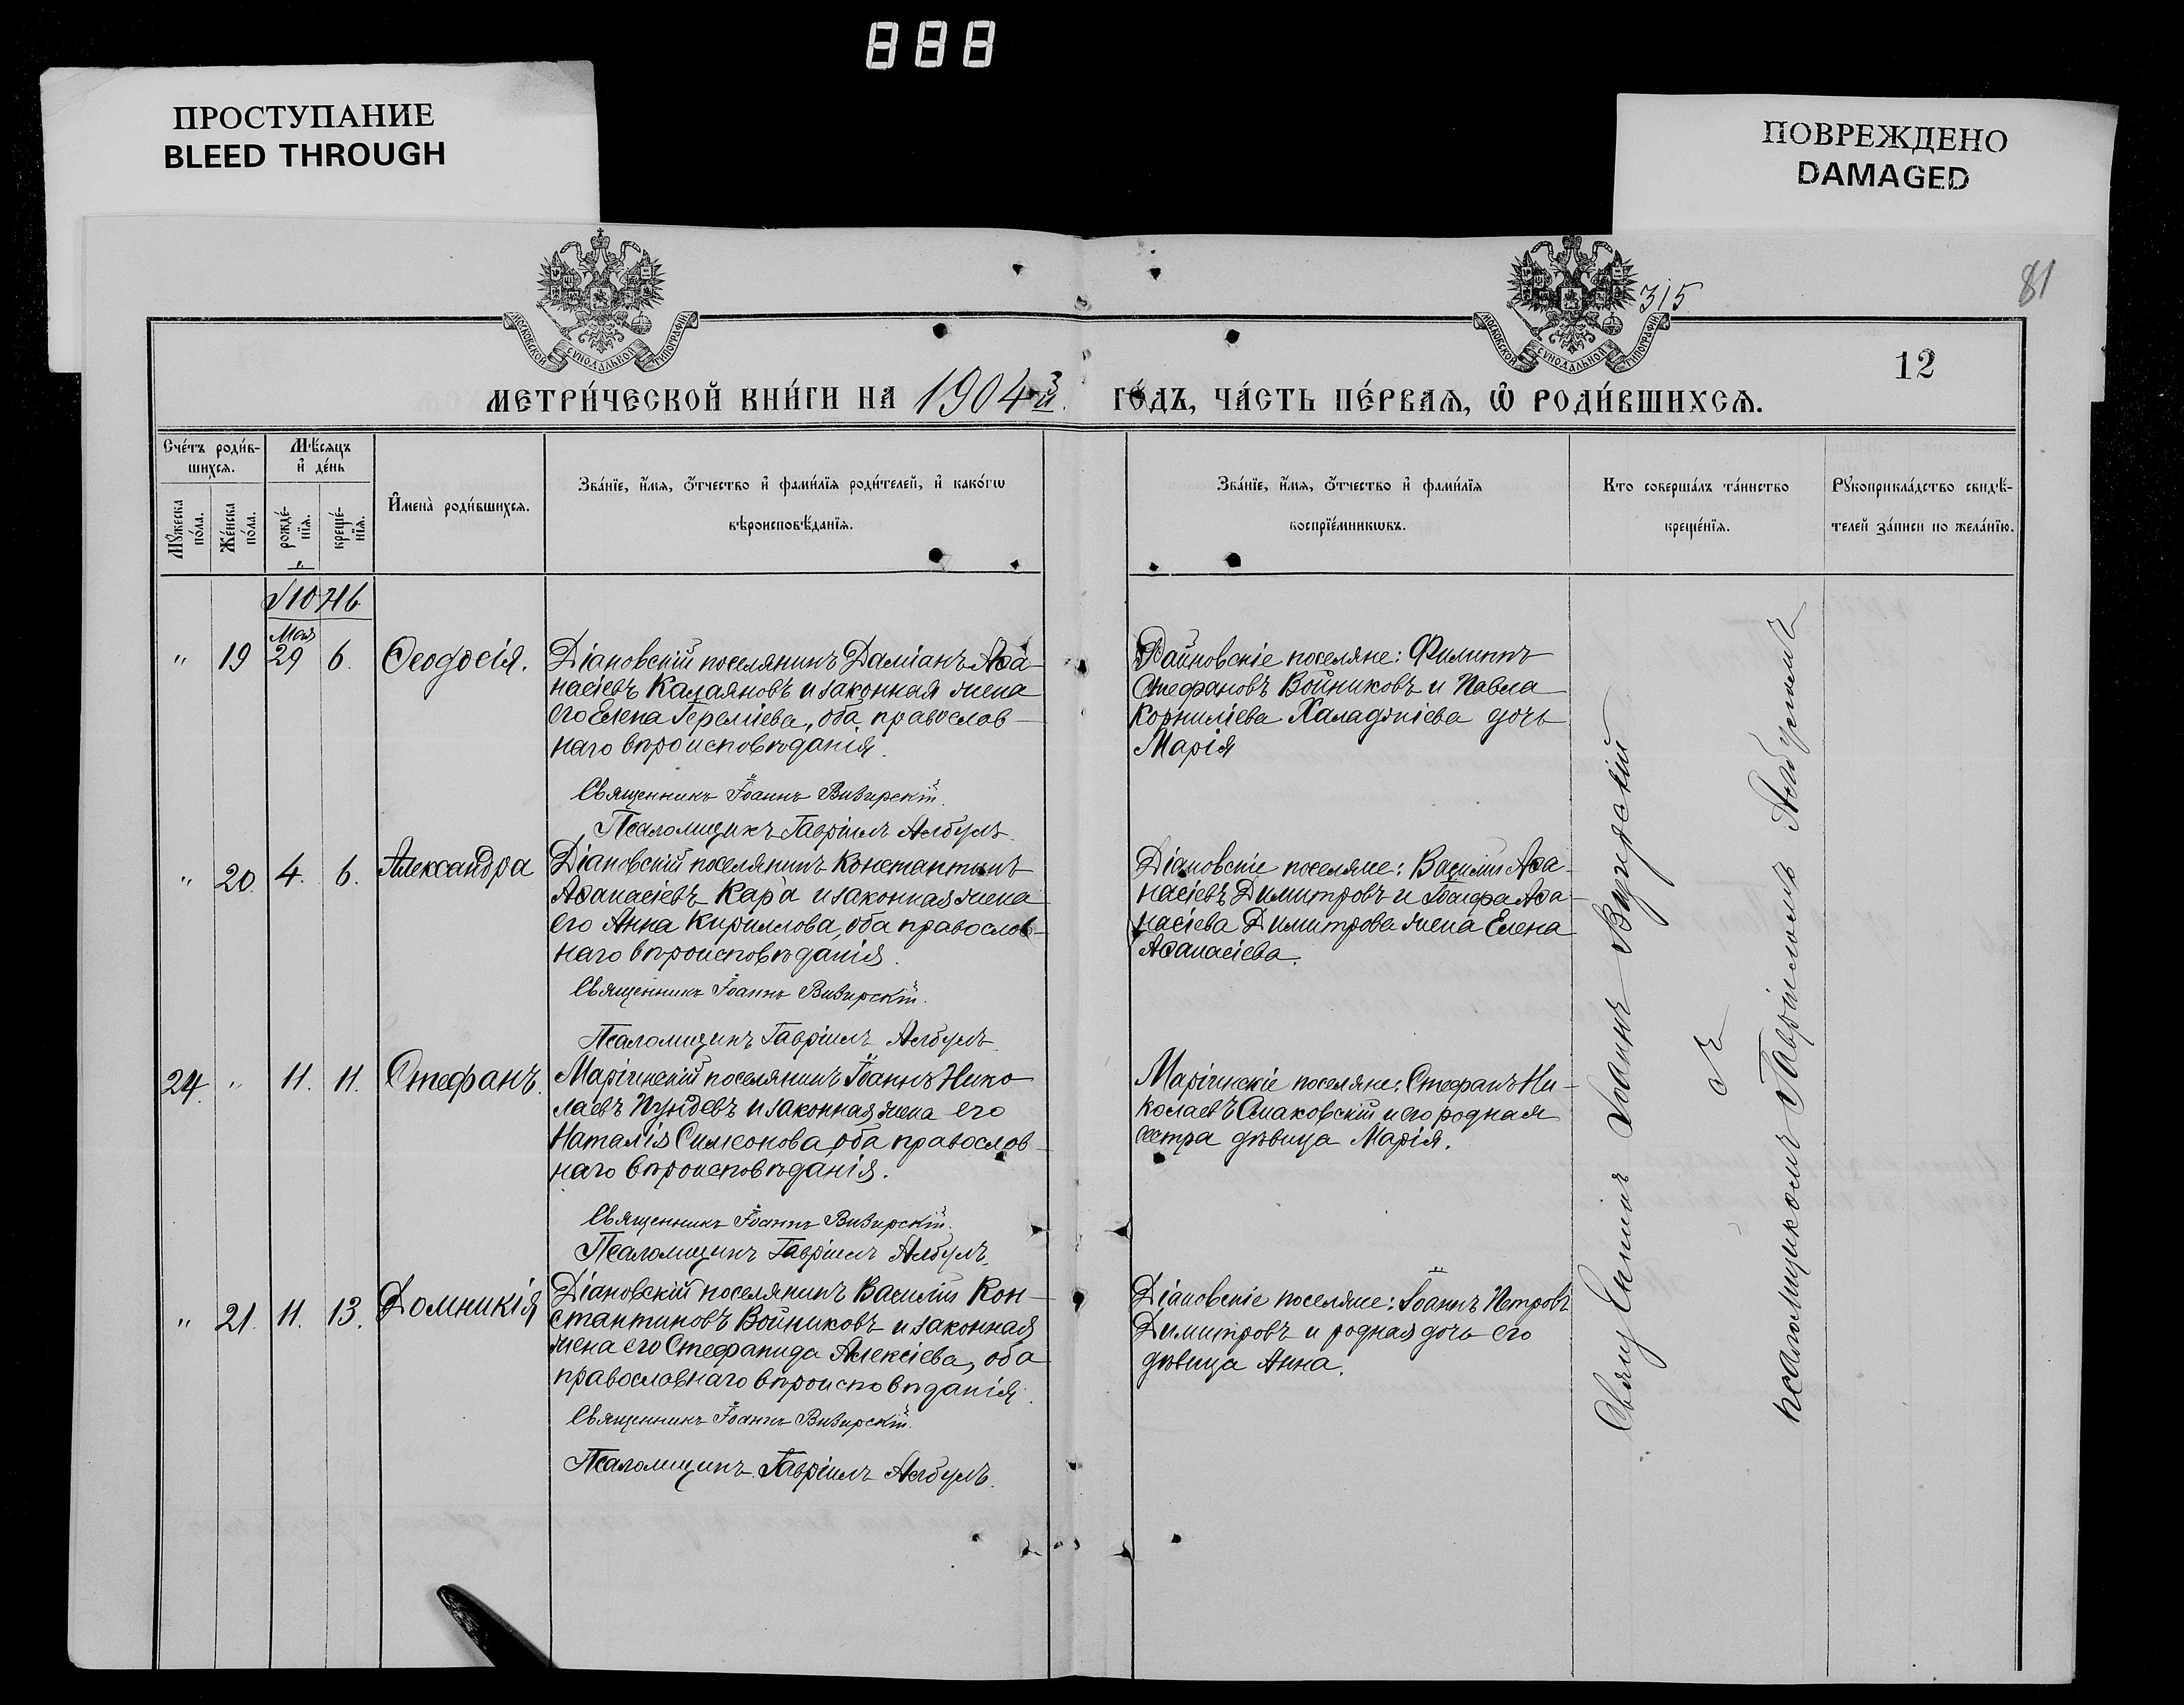 888
ПРОСТУПАНИЕ
BLEED THROUGH
ПОВРЕЖДЕНО
DAMAGED
315
81
12
МОСКОВСКОЙ СѴНОДАЛЬНОЙ ТИПОГРАФІИ
МОСКОВСКОЙ СѴНОДАЛЬНОЙ ТИПОГРАФІИ
МЕТРИ́ЧЕСКОЙ КНИ́ГИ НА 1904й го́дъ, ча́сть пе́рвая, ѽ роди́вшихся.
Сче́тъ роди́в-
шихся.
Мѣ́сяцъ
и҆ де́нь
Мꙋ́жеска
по́ла.
Же́нска
по́ла.
рожде́-
нїя.
креще́-
нїя.
И҆мена̀ роди́вшихся.
Зва́нїе, и҆́мя, ѻ҆́тчество и҆ фами́лїя роди́телей, и҆ како́гѡ
вѣроисповѣ́данїя.
Зва́нїе, и҆́мя, ѻ҆́тчество и҆ фами́лїя
воспрїе́мникѡвъ.
Кто соверша́лъ та́инство
креще́нїя.
Рꙋкоприкла́дство свидѣ́-
телей за́писи по жела́нїю.
Іюнь
Мая
" 19 29 6. Ѳеодосія.
Діановскій поселянинъ Даміанъ Аѳа-
насіевъ Калаяновъ и законная жена
его Елена Гереміева, оба православ-
наго вѣроисповѣданія.
Священникъ Іоаннъ Визирскій.
Псаломщикъ Гавріилъ Албулъ.
Стефановъ Войниковъ и Павла
Корниліева Халаджіева дочь
Марія
" 20. 4. 6. Александра
Діановскій поселянинъ Константинъ
Аѳанасіевъ Кара и законная жена
его Анна Кириллова, оба православ-
наго вѣроисповѣданія.
Священникъ Іоаннъ Визирскій.
Псаломщикъ Гавріилъ Албулъ.
Діановскіе поселяне: Василій Аѳа-
насіевъ Димитровъ и Іосифа Аѳа-
насіева Димитрова жена Елена
Аѳанасіева.
24. " 11. 11. Стефанъ.
Маріинскій поселянинъ Іоаннъ Нико-
лаевъ Пундевъ и законная жена его
Наталія Симеонова, оба православ-
наго вѣроисповѣданія.
Священникъ Іоаннъ Визирскій.
Псаломщикъ Гавріилъ Албулъ.
Маріинскіе поселяне: Стефанъ Ни-
колаевъ Спаковскій и его родная
сестра дѣвица Марія.
" 21. 11. 13. Домникія
Діановскій поселянинъ Василій Кон-
стантиновъ Войниковъ и законная
жена его Стефанида Алексіева, оба
православнаго вѣроисповѣданія.
Священникъ Іоаннъ Визирскій.
Псаломщикъ Гавріилъ Албулъ.
Діановскіе поселяне: Іоаннъ Петровъ
Димитровъ и родная дочь его
дѣвица Анна.
Іоаннъ Визирскій
съ
псаломщикомъ Гавріиломъ Албуломъ